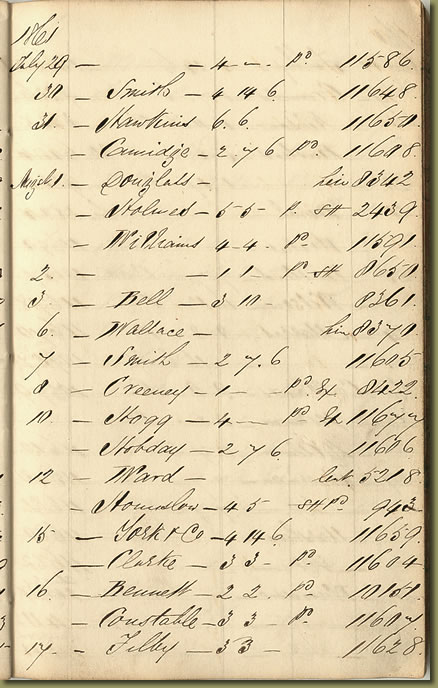 1861
July 29 — — 4 — . pd 11586.
30 — Smith — 4 14 6. 11648.
31. — Hawkins 6. 6. 11650.
— Camidge — 2 7 6 pd. 11608.
Augst 1. — Douglass — 8342
— Holmes — 5 5 — p. SH 2439.
— Williams — 4 — 4 — pd 11591
2. — — 1 1 — pd SH 8650.
3. — Bell — 3 10 — 8361.
6. — Wallace — 8370.
7 — Smith — 2 7. 6 11605.
8 — Creeney — 1 — pd. Ex 8422.
10. — Hogg — 4 — pd Ex
— Hobday — 2 7 6. 11606
12 — Ward — 5218.
— — 4 5 — SH pd 943
15 — York & Co — 4 14 6. 11659.
— Clarke — 3 3 — pd. 11604.
16. — Bennett — 2 2. pd
— Constable — 3 3 — pd. 11607
17. — Tilby — 3 3 — 11628.